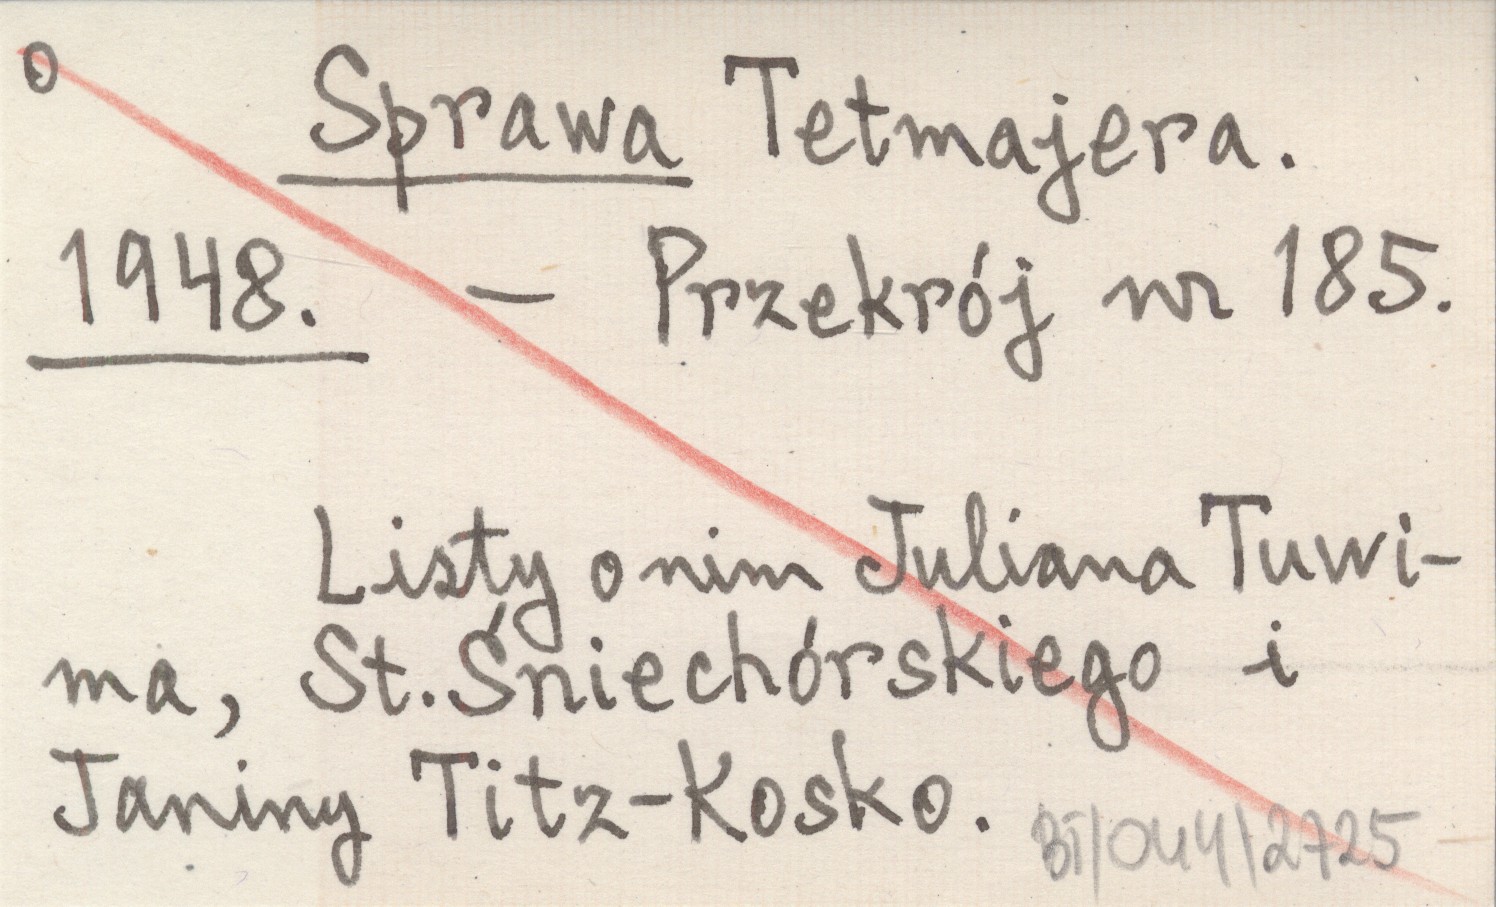 o Sprawa Tetmajera.
1948. — Przekrój nr 185.
Listy o nim Juliana Tuwi-
ma, St. Śniechórskiego i
Janiny Titz-Kosko.
BT/044/2725